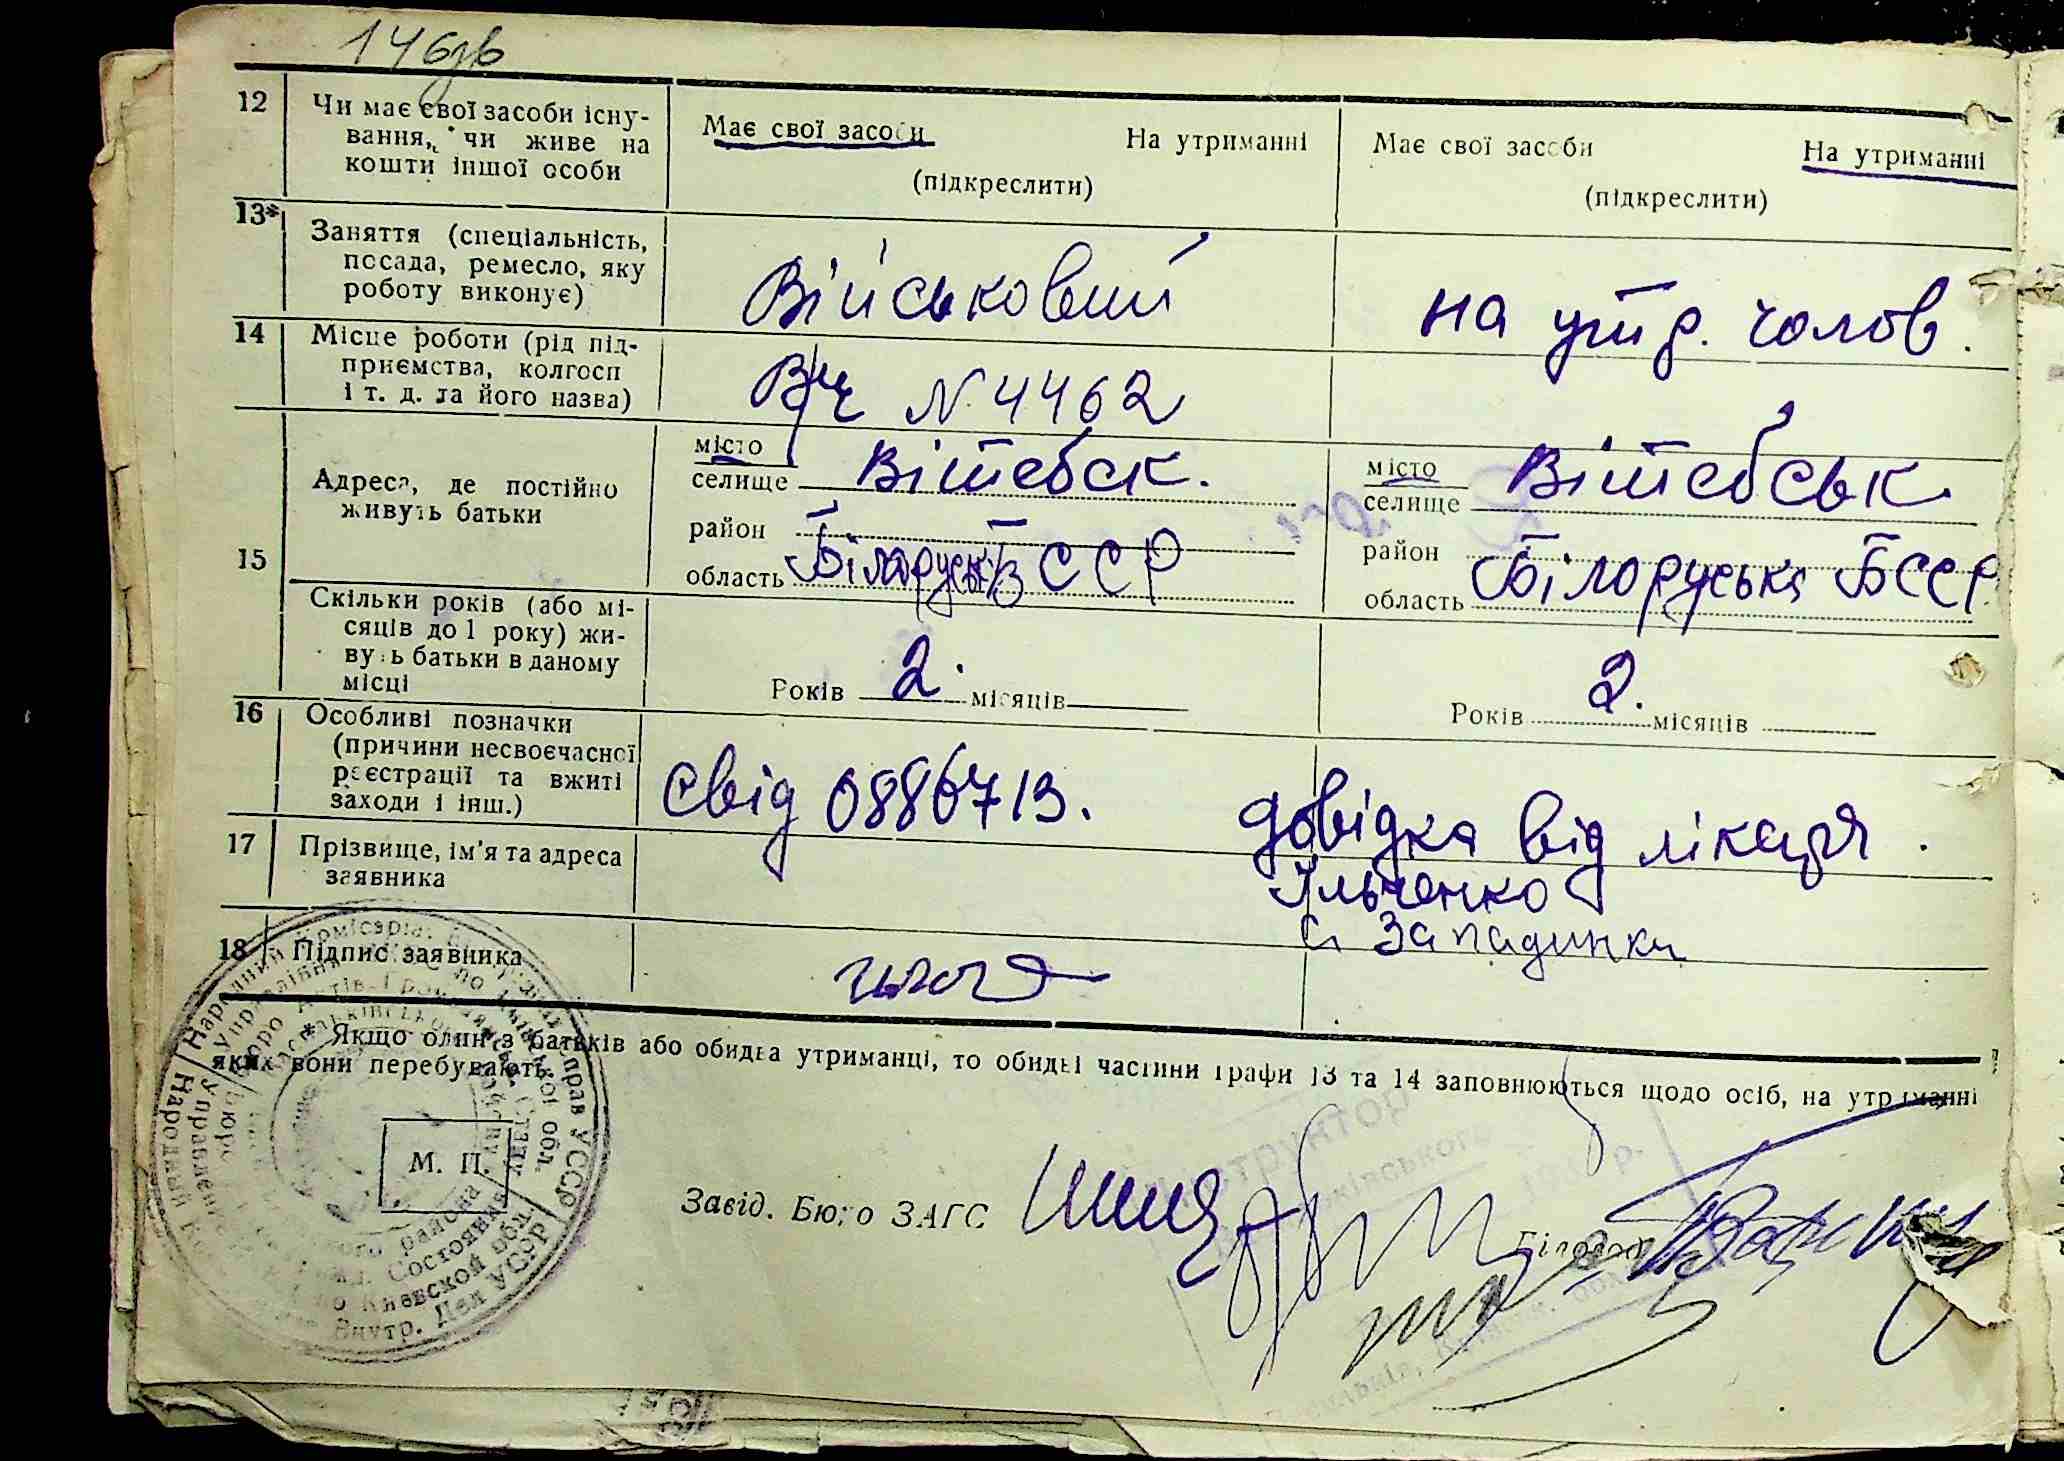 146зв
12 Чи має свої засоби існу-
вання, чи живе на
кошти іншої особи
Має свої засоби На утриманні
(підкреслити)
Має свої засоби На утриманні
(підкреслити)
13* Заняття (спеціальність,
посада, ремесло, яку
роботу виконує)
Військовий
на утр. чолов.
14 Місце роботи (рід під-
приємства, колгосп
і т. д. та його назва)
В/ч N 4462
15 Адреса, де постійно
живуть батьки
місто
селище Вітебск.
район
область Білоруськ БССР
місто
селище Вітебськ
район
область Білоруська БССР
Скільки років (або мі-
сяців до 1 року) жи-
вуть батьки в даному
місці
Років 2. місяців
Років 2. місяців
16 Особливі позначки
(причини несвоєчасної
реєстрації та вжиті
заходи і інш.)
Свід 0886713. довідка від лікаря.
Ільченко
с. Западинка
17 Прізвище, ім'я та адреса
заявника
18 Підпис заявника
* Якщо один з батьків або обидва утриманці, то обидві частини графи 13 та 14 заповнюються щодо осіб, на утриманні
яких вони перебувають.
М. П.
Завід. Бюро ЗАГС
Діловод
Народний Комісаріат Внутрішніх Справ УССР
Управління по Київської обл.
Бюро Актів
района
Состояния
по Киевской обл.
Внутр. Дел УССР